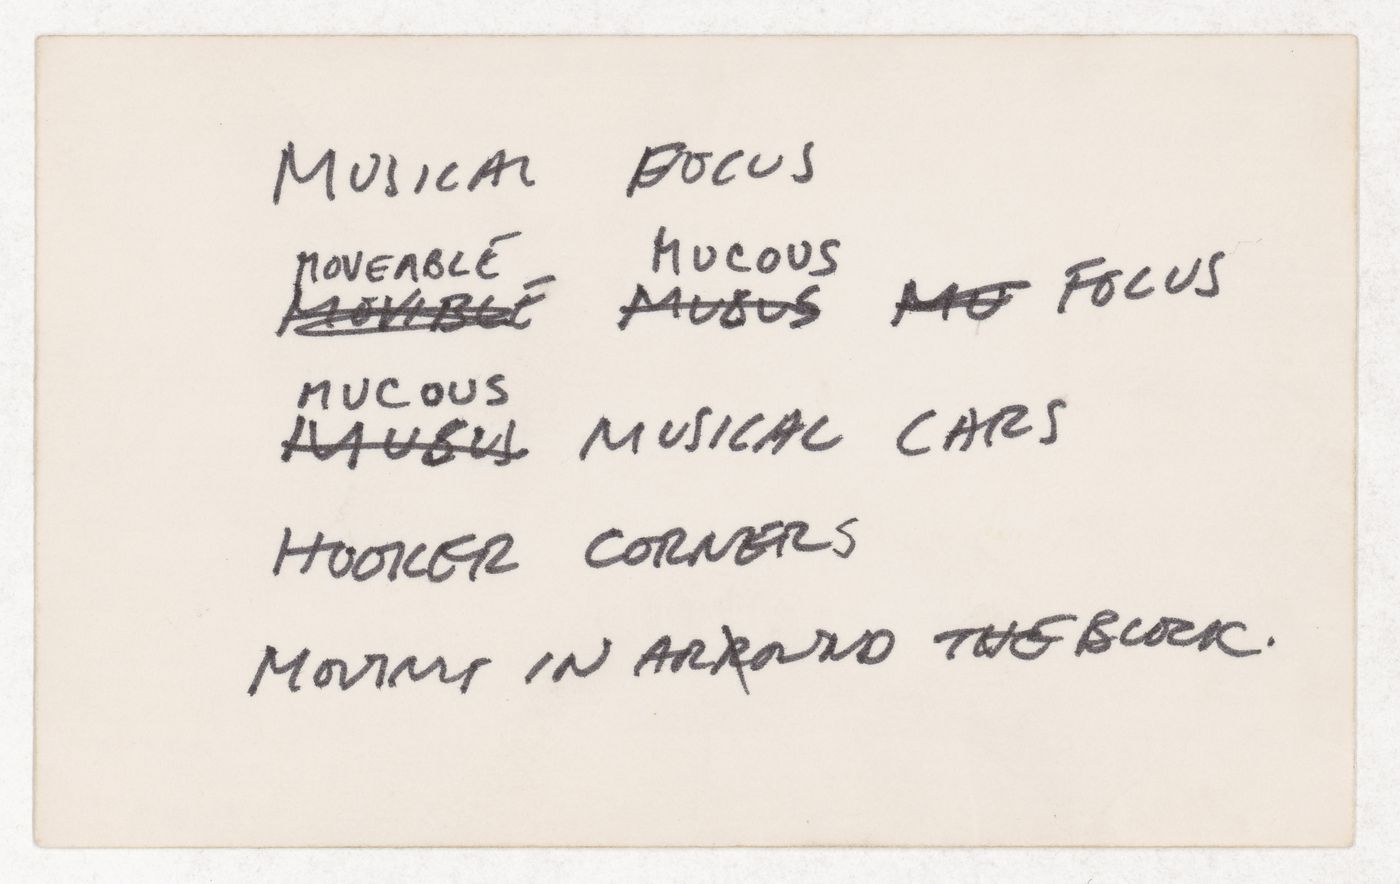 MUSICAL FOCUS
MOVEABLE MUCOUS
MOVIBLE MUBUS MO FOCUS
MUCOUS
MUBUS MUSICAL CARS
HOOKER CORNERS
IN ARROUND THE BLOCK.